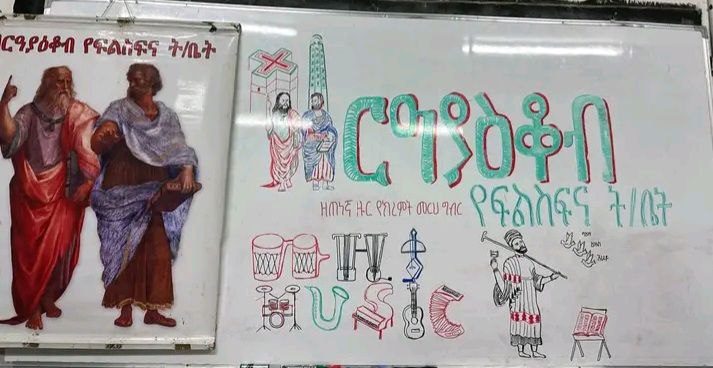 ዘርዓያዕቆብ የፍልስፍና ት/ቤት
ዘርዓያዕቆብ
የፍልስፍና ት/ቤት
ዘጠነኛ ዙር የክረምት መርሀ ግብር
ሙዚቃ
MUSIC